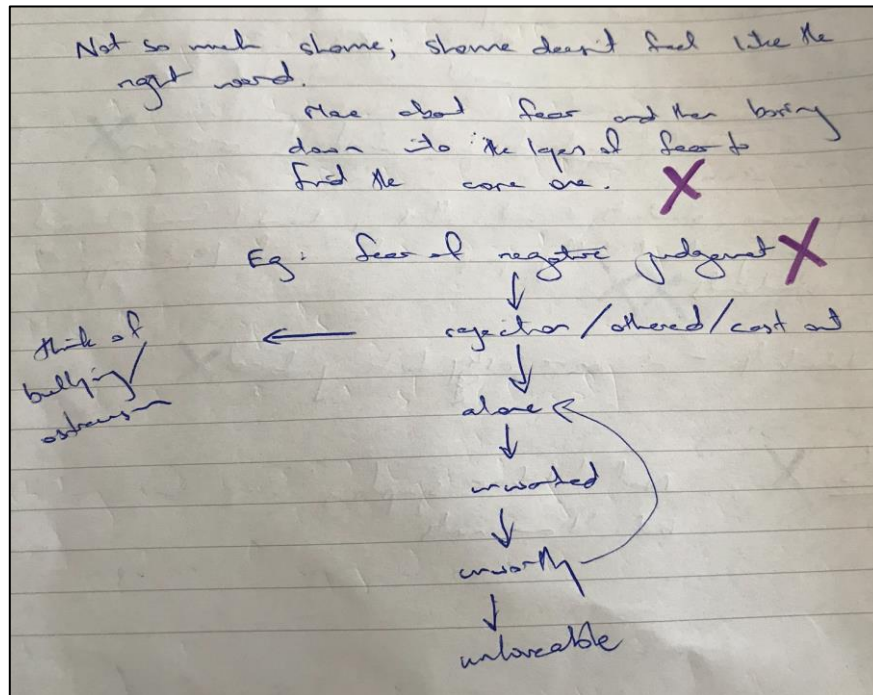 Not so much shame; shame doesn't feel like the
right word.
More about fear and then boring
down into the layers of fear to
find the core one. X
Eg: fear of negative judgement X
rejection/othered/cast out
think of
bullying/
ostracism
alone
unwanted
unworthy
unloveable